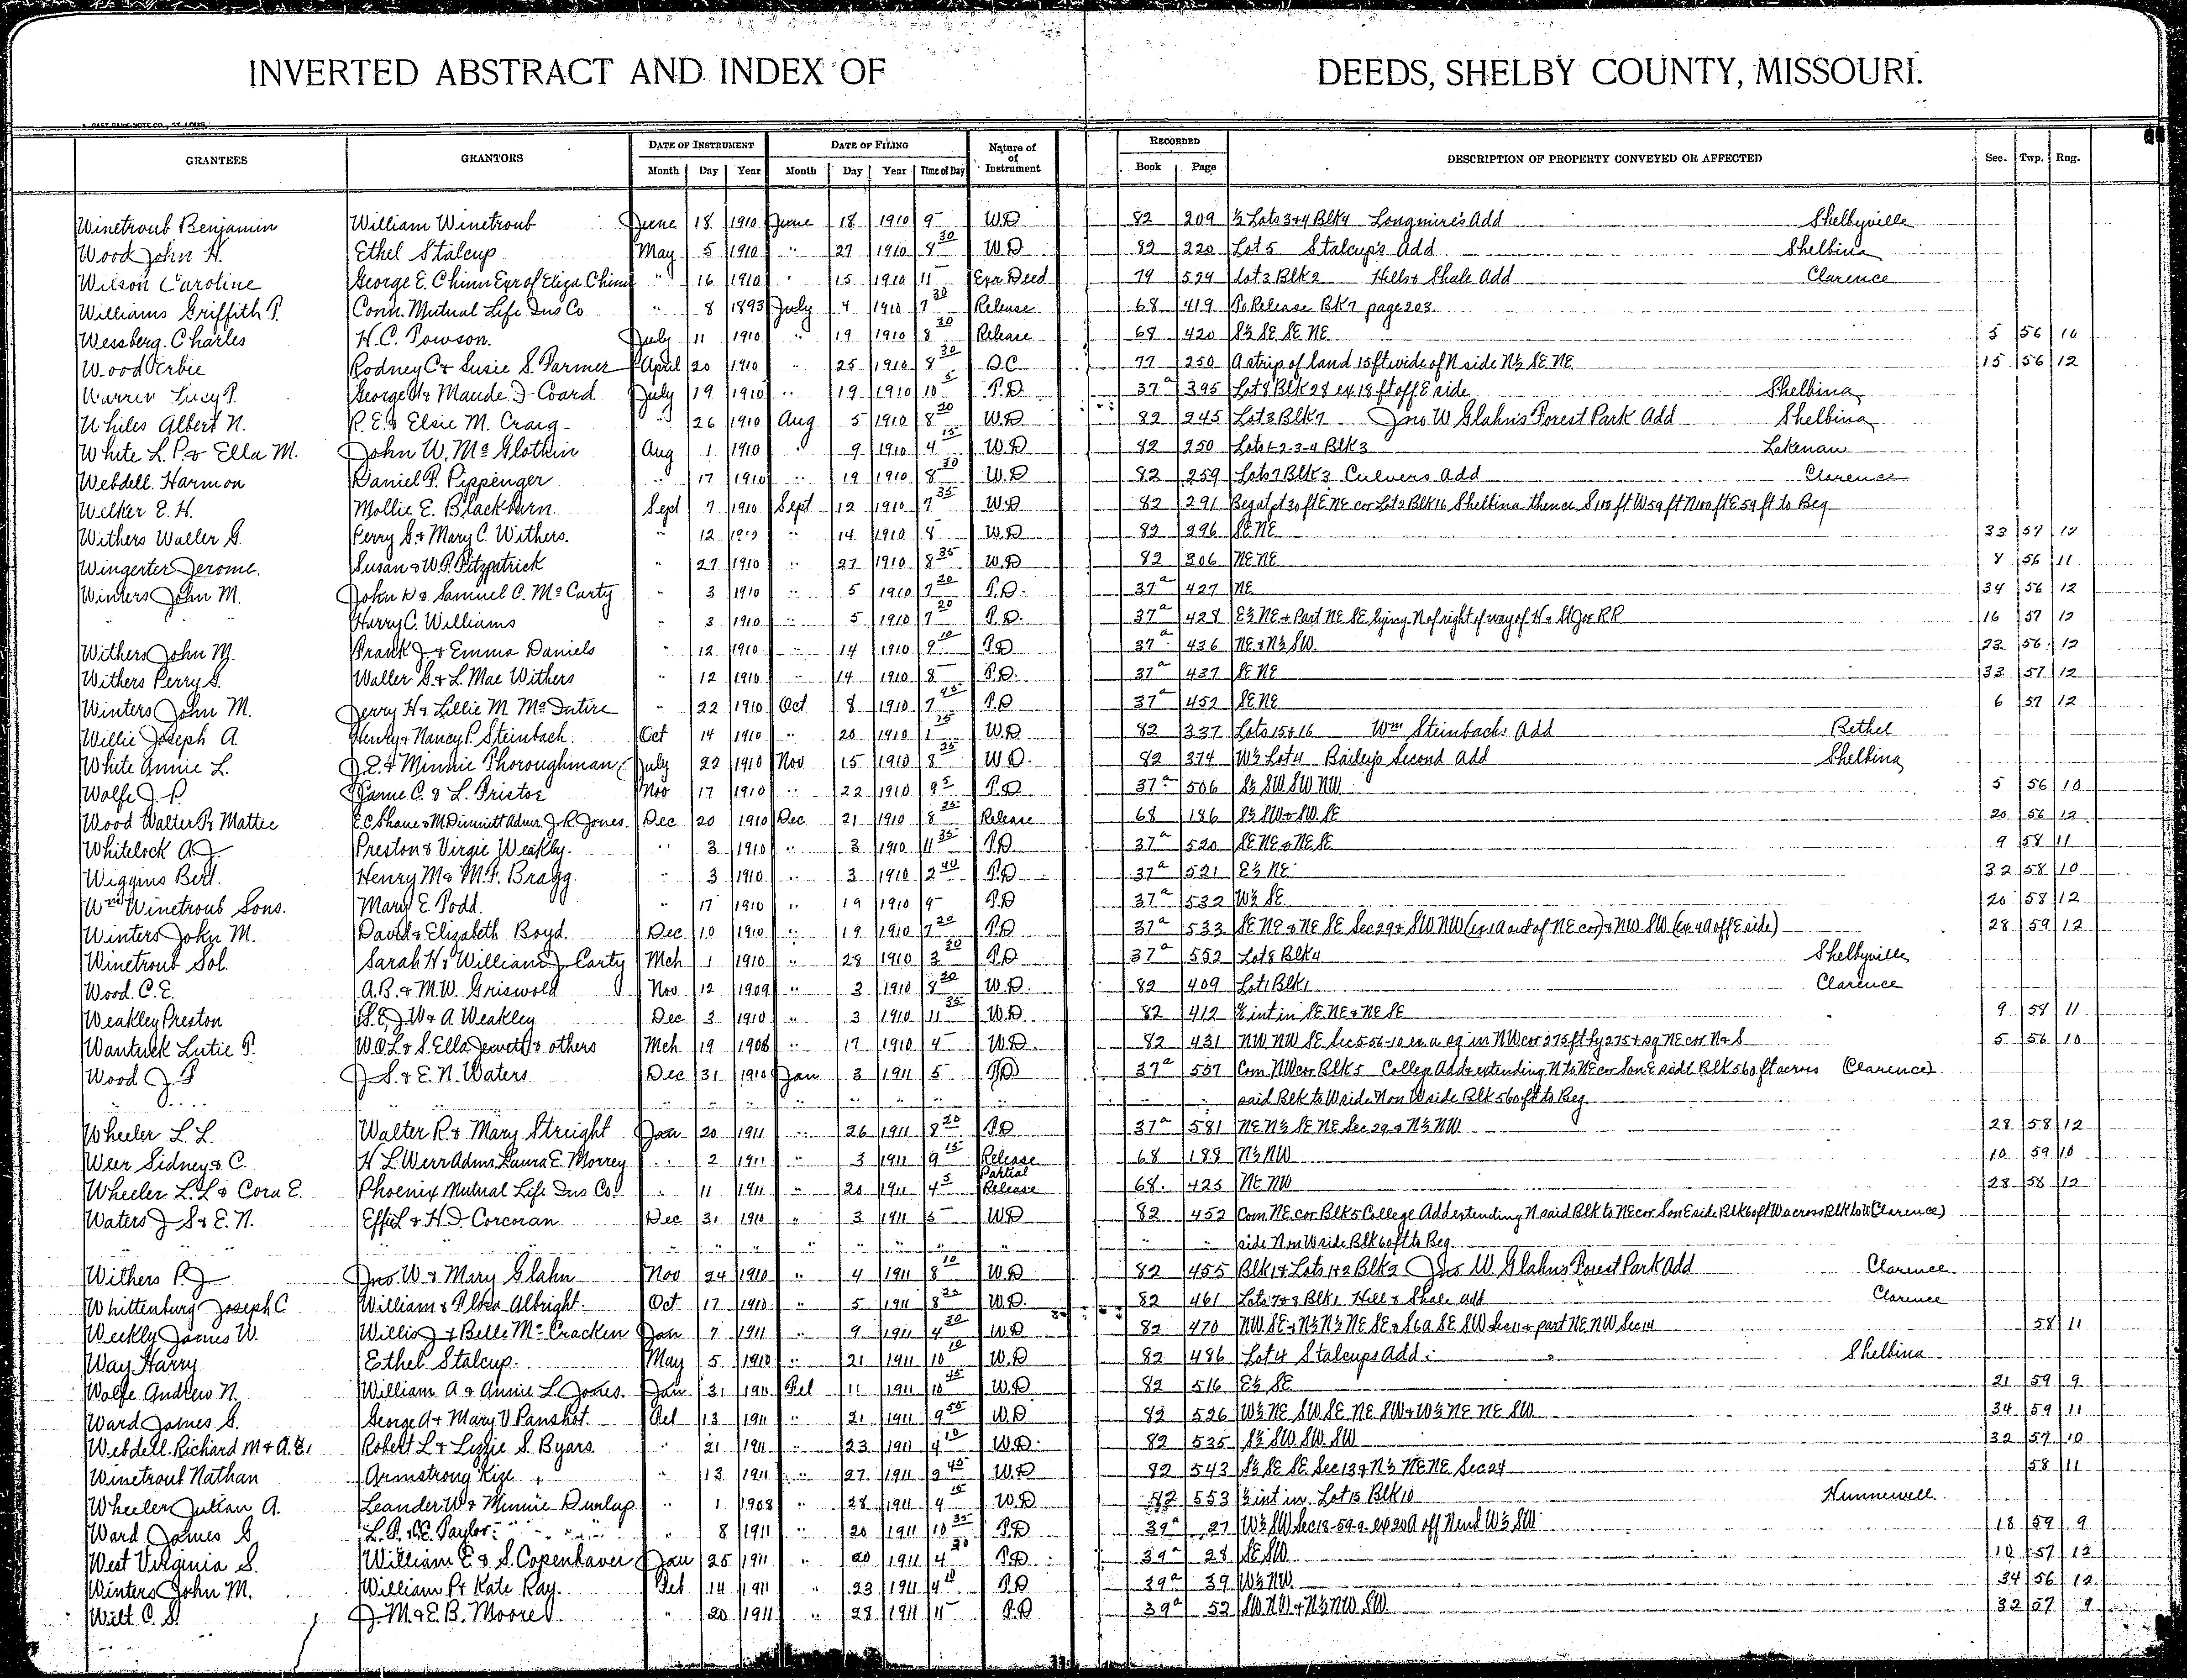 INVERTED ABSTRACT AND INDEX OF DEEDS, SHELBY COUNTY, MISSOURI.
GRANTEES GRANTORS DATE OF INSTRUMENT DATE OF FILING Nature of of Instrument RECORDED DESCRIPTION OF PROPERTY CONVEYED OR AFFECTED Sec. Twp. Rng.
Month Day Year Month Day Year Time of Day Book Page
Winetroub Benjamin William Winetroub June 18 1910 June 18 1910 9 W.D 82 209 ½ Lots 3+4 Blk 4 Longmire's Add Shelbyville
Wood John H. Ethel Stalcup May 5 1910 " 27 1910 8 30 W.D 82 220 Lot 5 Stalcup's Add Shelbina
Wilson Caroline George E. Chinn Exr of Eliza Chinn " 16 1910 " 15 1910 11 Exr Deed 79 579 Lot 3 Blk 2 Hill & Shale Add Clarence
Williams Griffith P. Conn. Mutual Life Ins Co " 8 1893 July 4 1910 7 30 Release 68 419 To Release Bk 7 page 203.
Wessberg. Charles H.C. Towson. July 11 1910 " 19 1910 8 30 Release 68 420 S½ SE SE NE 5 56 10
Wood Virbie Rodney C & Susie S. Farmer April 20 1910 " 25 1910 8 30 Q.C. 77 250 A strip of land 15 ft wide of N side N½ SE NE 15 56 12
Warren Lucy P. George H & Maude J Coard July 19 1910 " 19 1910 10 5 T.D 37a 395 Lot 8 Blk 28 ex 18 ft off E side Shelbina
Whiles Albert N. R.E. & Elsie M. Craig " 26 1910 Aug 5 1910 8 20 W.D 82 245 Lot 3 Blk 7 Jno W Glahn's Forest Park Add Shelbina
White L. P. & Ella M. John W. McGlothin Aug 1 1910 " 9 1910 4 15 W.D 82 250 Lots 1-2-3-4 Blk 3 Lakenan
Webdell. Harmon Daniel P. Pippenger " 17 1910 " 19 1910 8 30 W.D 82 259 Lots 7 Blk 3 Culvers Add Clarence
Welker E. H. Mollie E. Blackburn. Sept 7 1910 Sept 12 1910 7 35 W.D 82 291 Beg at pt 30 ft E NE cor Lot 2 Blk 16 Shelbina thence S 100 ft W 59 ft N 100 ft E 59 ft to Beg
Withers Waller G. Perry S. & Mary C. Withers. " 12 1910 " 14 1910 8 W.D 82 296 SE NE 33 57 12
Wingerter Jerome. Susan & W.P. Fitzpatrick " 27 1910 " 27 1910 8 35 W.D 82 306 NE NE 8 56 11
Winters John M. John N & Samuel C. McCarty " 3 1910 " 5 1910 7 20 T.D. 37a 427 NE 34 56 12
" Harry C. Williams " 3 1910 " 5 1910 7 20 T.D. 37a 428 E½ NE & Part NE SE lying N of right of way of H & St Joe RR 16 57 12
Withers John M. Frank J & Emma Daniels " 12 1910 " 14 1910 9 10 T.D 37a 436 NE & N½ SW. 23 56 12
Withers Perry S. Waller G. & L Mae Withers " 12 1910 " 14 1910 8 T.D. 37a 437 SE NE 33 57 12
Winters John M. Jerry H & Lillie M McIntire " 22 1910 Oct 8 1910 7 45 T.D 37a 452 SE NE 6 57 12
Willie Joseph A. Henry & Nancy P. Steinbach. Oct 14 1910 " 20 1910 1 25 W.D 82 337 Lots 15 & 16 Wm Steinbachs Add Bethel
White Annie L. J.E. & Minnie Thoroughman July 22 1910 Nov 15 1910 8 25 W.D. 82 374 W½ Lot 4 Bailey's Second Add Shelbina
Wolfe J. P. Jamie C. & L. Pristoe Nov 17 1910 " 22 1910 9 5 T.D 37a 506 S½ SW SW NW 5 56 10
Wood Walter P & Mattie E.C Shane & M Dimmitt Admr. J.R. Jones. Dec 20 1910 Dec 21 1910 8 25 Release 68 186 S½ SW & SW. SE 20 56 12
Whitelock A.J. Preston & Virgie Weakley. " 3 1910 " 3 1910 11 35 T.D. 37a 520 SE NE & NE SE 9 58 11
Wiggins Bert. Henry M & M.F. Bragg " 3 1910 " 3 1910 2 40 T.D 37a 521 E½ NE 32 58 10
Wm Winetroub Sons. Mary E. Todd. " 17 1910 " 19 1910 9 T.D 37a 532 W½ SE 20 58 12
Winters John M. David & Elizabeth Boyd. Dec 10 1910 " 19 1910 7 20 T.D 37a 533 SE NE & NE SE Sec 29 & SW NW (ex 1A out of NE cor) & NW SW (ex 4A off E side) 28 59 12
Winetroub Sol. Sarah H & William J. Carty Mch 1 1910 " 28 1910 3 30 T.D 37a 552 Lot 8 Blk 4 Shelbyville
Wood. C.E. A.B. & M.W. Griswold Nov 12 1909 " 3 1910 8 20 W.D. 82 409 Lot 1 Blk 1 Clarence
Weakley Preston S.E, J.W & A Weakley Dec 3 1910 " 3 1910 11 35 W.D 82 412 ½ int in SE NE & NE SE 9 58 11
Wantuck Lutie P. W.O.L. & S. Ella Jewett & others Mch 19 1908 " 17 1910 4 W.D. 82 431 NW NW SE Sec 5-56-10 ex a sq in NW cor 275 ft by 275 & sq NE cor N & S 5 56 10
Wood J P J S. & E. N. Waters Dec 31 1910 Jan 3 1911 5 T.D 37a 557 Com NW cor Blk 5 College Add extending N to NE cor S on E side Blk 560 ft across (Clarence)
" " " " " " " " " " " said Blk to W side N on W side Blk 560 ft to Beg.
Wheeler L. L. Walter R. & Mary Streight Jan 20 1911 " 26 1911 8 20 T.D 37a 581 NE N½ SE NE Sec 29 & N½ NW 28 58 12
Weer Sidney & C. H L. Werr Admr. Laura E. Morrey " 2 1911 " 3 1911 9 15 Release 68 188 N½ NW 10 59 10
Wheeler L. L & Cora E. Phoenix Mutual Life Ins Co. " 11 1911 " 20 1911 4 5 Partial Release 68 425 NE NW 28 58 12
Waters J S & E. N. Effie L & H. D. Corcoran Dec 31 1910 " 3 1911 5 W.D 82 452 Com NE cor Blk 5 College Add extending N said Blk to NE cor S on E side Blk 60 ft W across Blk to W (Clarence)
" " " " " " " " " side N on W side Blk 60 ft to Beg
Withers P.J Jno W & Mary Glahn Nov 24 1910 " 4 1911 8 10 W.D 82 455 Blk 1 & Lots 1 & 2 Blk 2 Jno W Glahns Forest Park Add Clarence.
Whittenburg Joseph C William & Flora Albright. Oct 17 1910 " 5 1911 8 25 W.D. 82 461 Lots 7 & 8 Blk 1 Hill & Shale Add Clarence
Weekly James W. Willis J & Belle McCracken Jan 7 1911 " 9 1911 4 30 W.D 82 470 NW SE & N½ N½ NE SE & S6a SE SW Sec 11 & part NE NW Sec 14 58 11
Way Harry Ethel Stalcup. May 5 1910 " 21 1911 10 10 W.D 82 486 Lot 4 Stalcups Add. Shelbina
Wolfe Andrew N. William A & Annie L. Jones. Jan 31 1911 Feb 11 1911 10 45 W.D 82 516 E½ SE 21 59 9
Ward James S. George A & Mary V Panshot. Oct 13 1911 " 21 1911 9 55 W.D 82 526 W½ NE SW SE NE SW & W½ NE NE SW 34 59 11
Webdell Richard M & A.E. Robert L & Lizzie S. Byars. " 21 1911 " 23 1911 4 10 W.D. 82 535 S½ SW SW. SW 32 57 10
Winetroub Nathan Armstrong Kize " 13 1911 " 27 1911 2 45 W.D 82 543 S½ SE SE Sec 13 & N½ NE NE Sec 24 58 11
Wheeler Julian A. Leander W & Minnie Dunlap " 1 1908 " 28 1911 4 15 W.D 82 553 ½ int in Lot 15 Blk 10 Hunnewell
Ward James S L.P. & E. Taylor " 8 1911 " 20 1911 10 35 T.D 39a 27 W½ SW Sec 18-59-9 exp 20A off N end W½ SW 18 59 9
West Virginia S. William E & S. Copenhaver Jan 25 1911 " 20 1911 4 30 T.D. 39a 28 SE SW 10 57 12
Winters John M. William P & Kate Ray. Feb 14 1911 " 23 1911 4 10 T.D 39a 39 W½ NW. 34 56 12
Wilt C. S. J. M. & E. B. Moore " 20 1911 " 28 1911 11 T.D 39a 52 SW NW & N½ NW SW 32 57 9